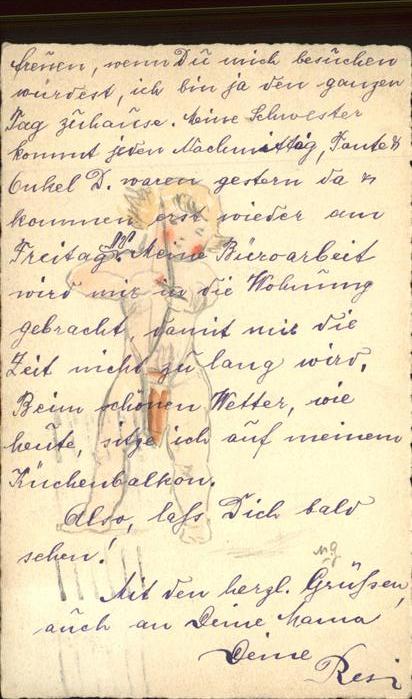 freuen, wenn Du mich besuchen
würdest, ich bin ja den ganzen
Tag zuhause. Meine Schwester
kommt jeden Nachmittag, Tante &
Onkel D. waren gestern da &
kommen erst wieder am
Freitag. Meine Büroarbeit
wird mir in die Wohnung
gebracht, damit mir die
Zeit nicht zu lang wird.
Beim schönen Wetter, wie
heute, sitze ich auf meinem
Küchenbalkon.
Also, lass Dich bald
sehen!
Mit den herzl. Grüßen,
auch an Deine Mama
Deine
Resi